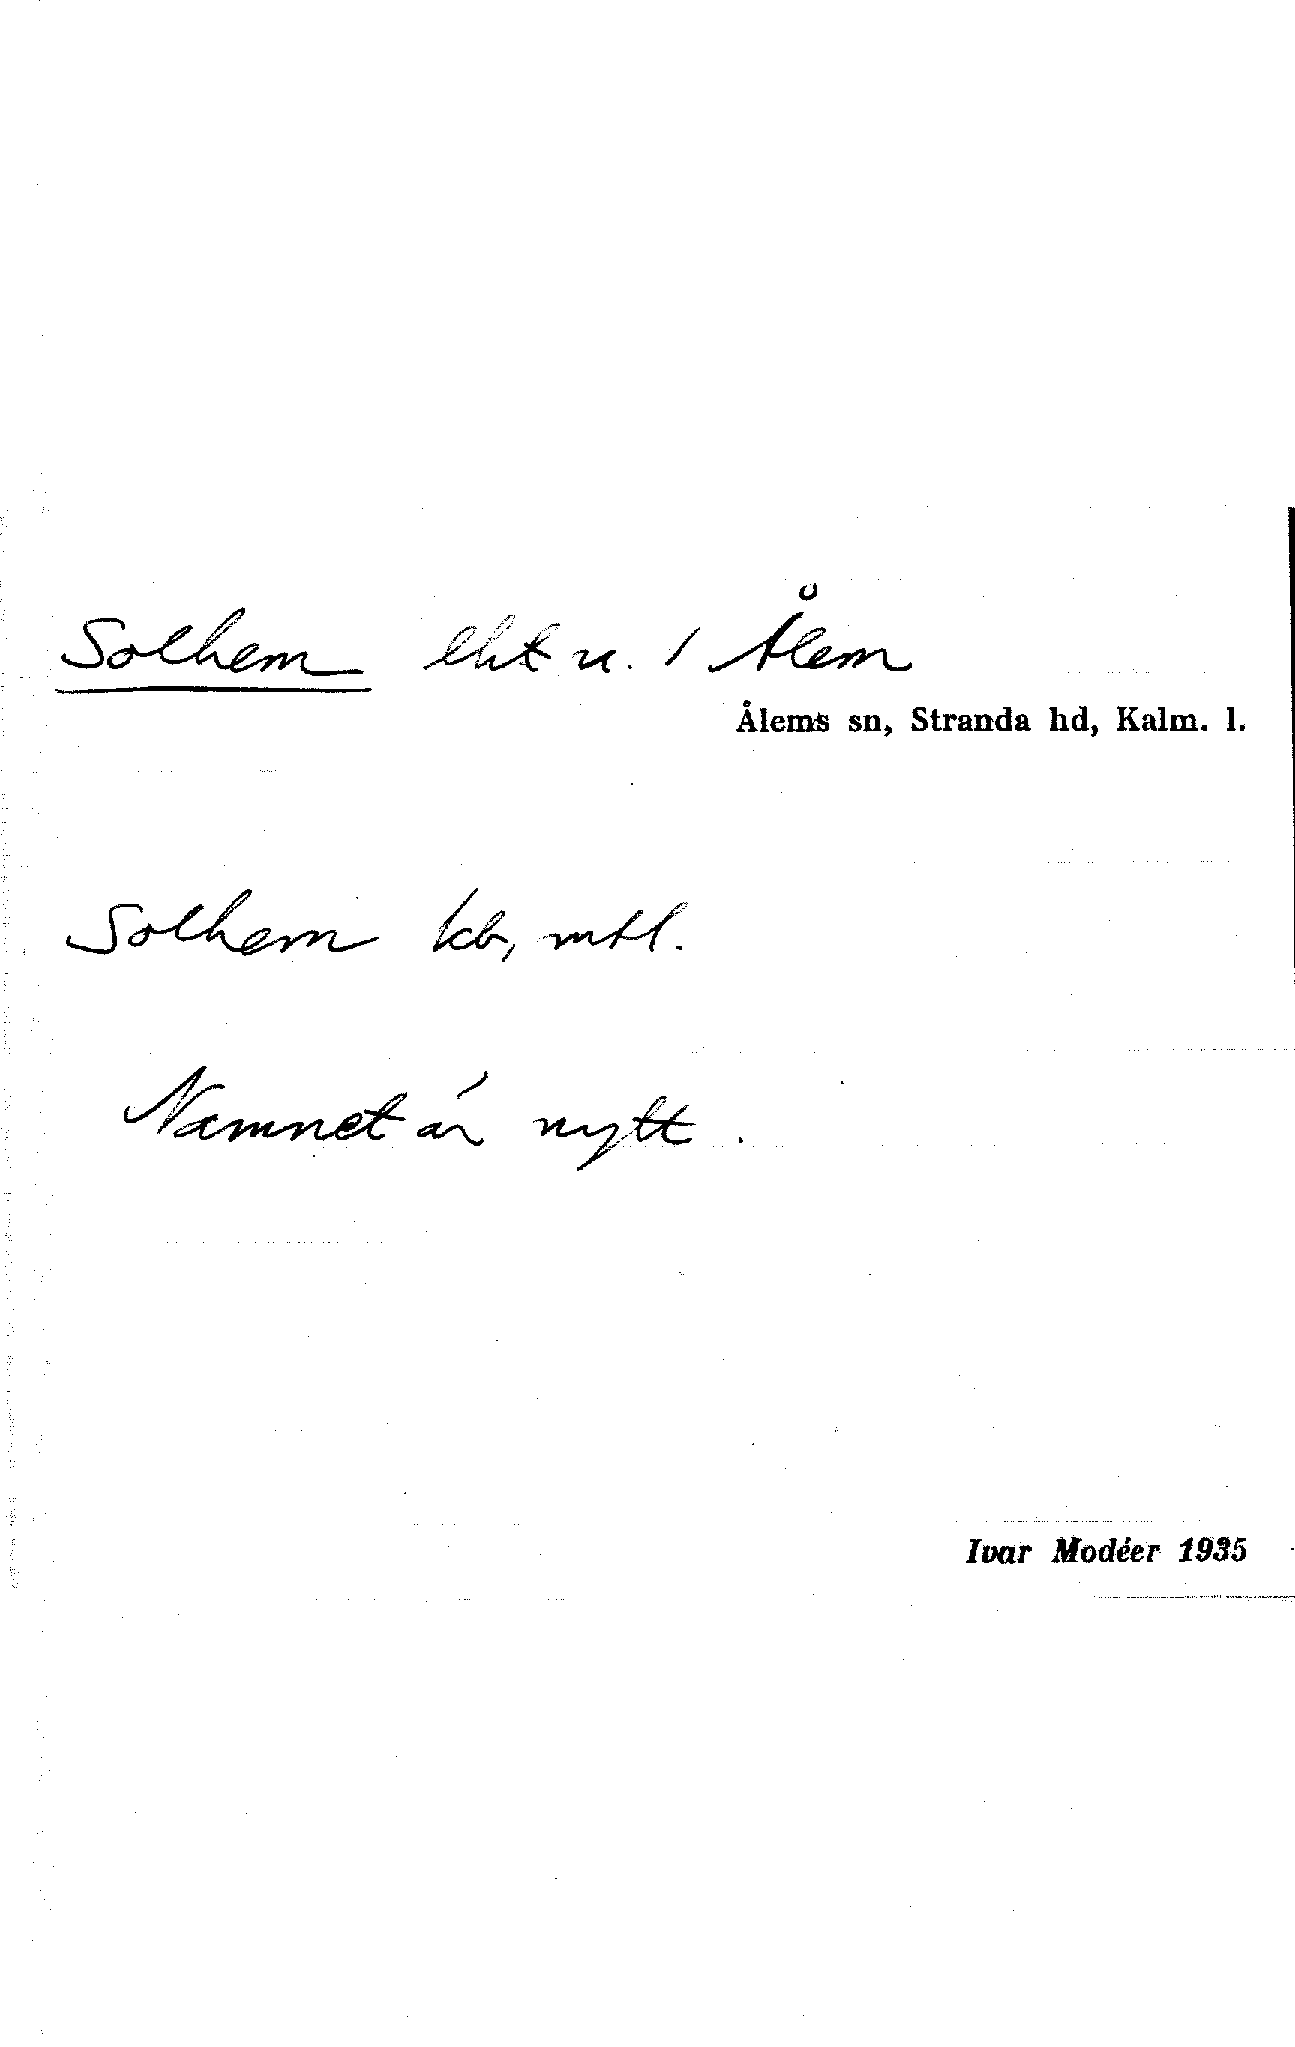 Solhem lht u. / Ålem
Ålems sn, Stranda hd, Kalm. l.
Solhem kb, mtl.
Namnet är nytt.
Ivar Modéer 1935